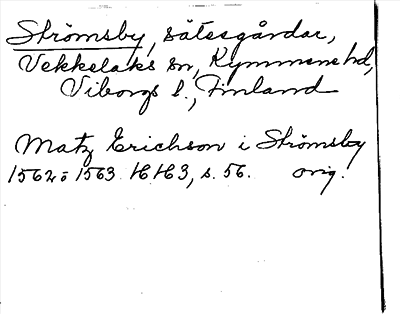 Strömsby, sätesgårdar,
Vekkelaks sn, Kymmene hd,
Viborgs l., Finland
Matz Erichson i Strömsby
1562 o 1563 HH3, s. 56. orig.